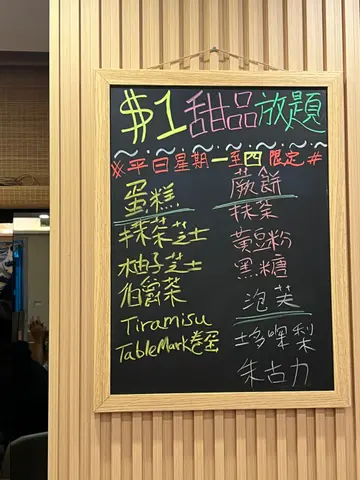 $1 甜品放題
※平日星期一至四限定#
蛋糕
抹茶芝士
柚子芝士
伯爵茶
Tiramisu
TableMark卷蛋
蕨餅
抹茶
黃豆粉
黑糖
泡芙
士多啤梨
朱古力